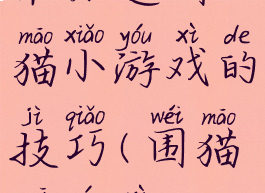 māo xiǎo yóu xì de
猫小游戏的
jì qiǎo wéi māo
技巧(围猫